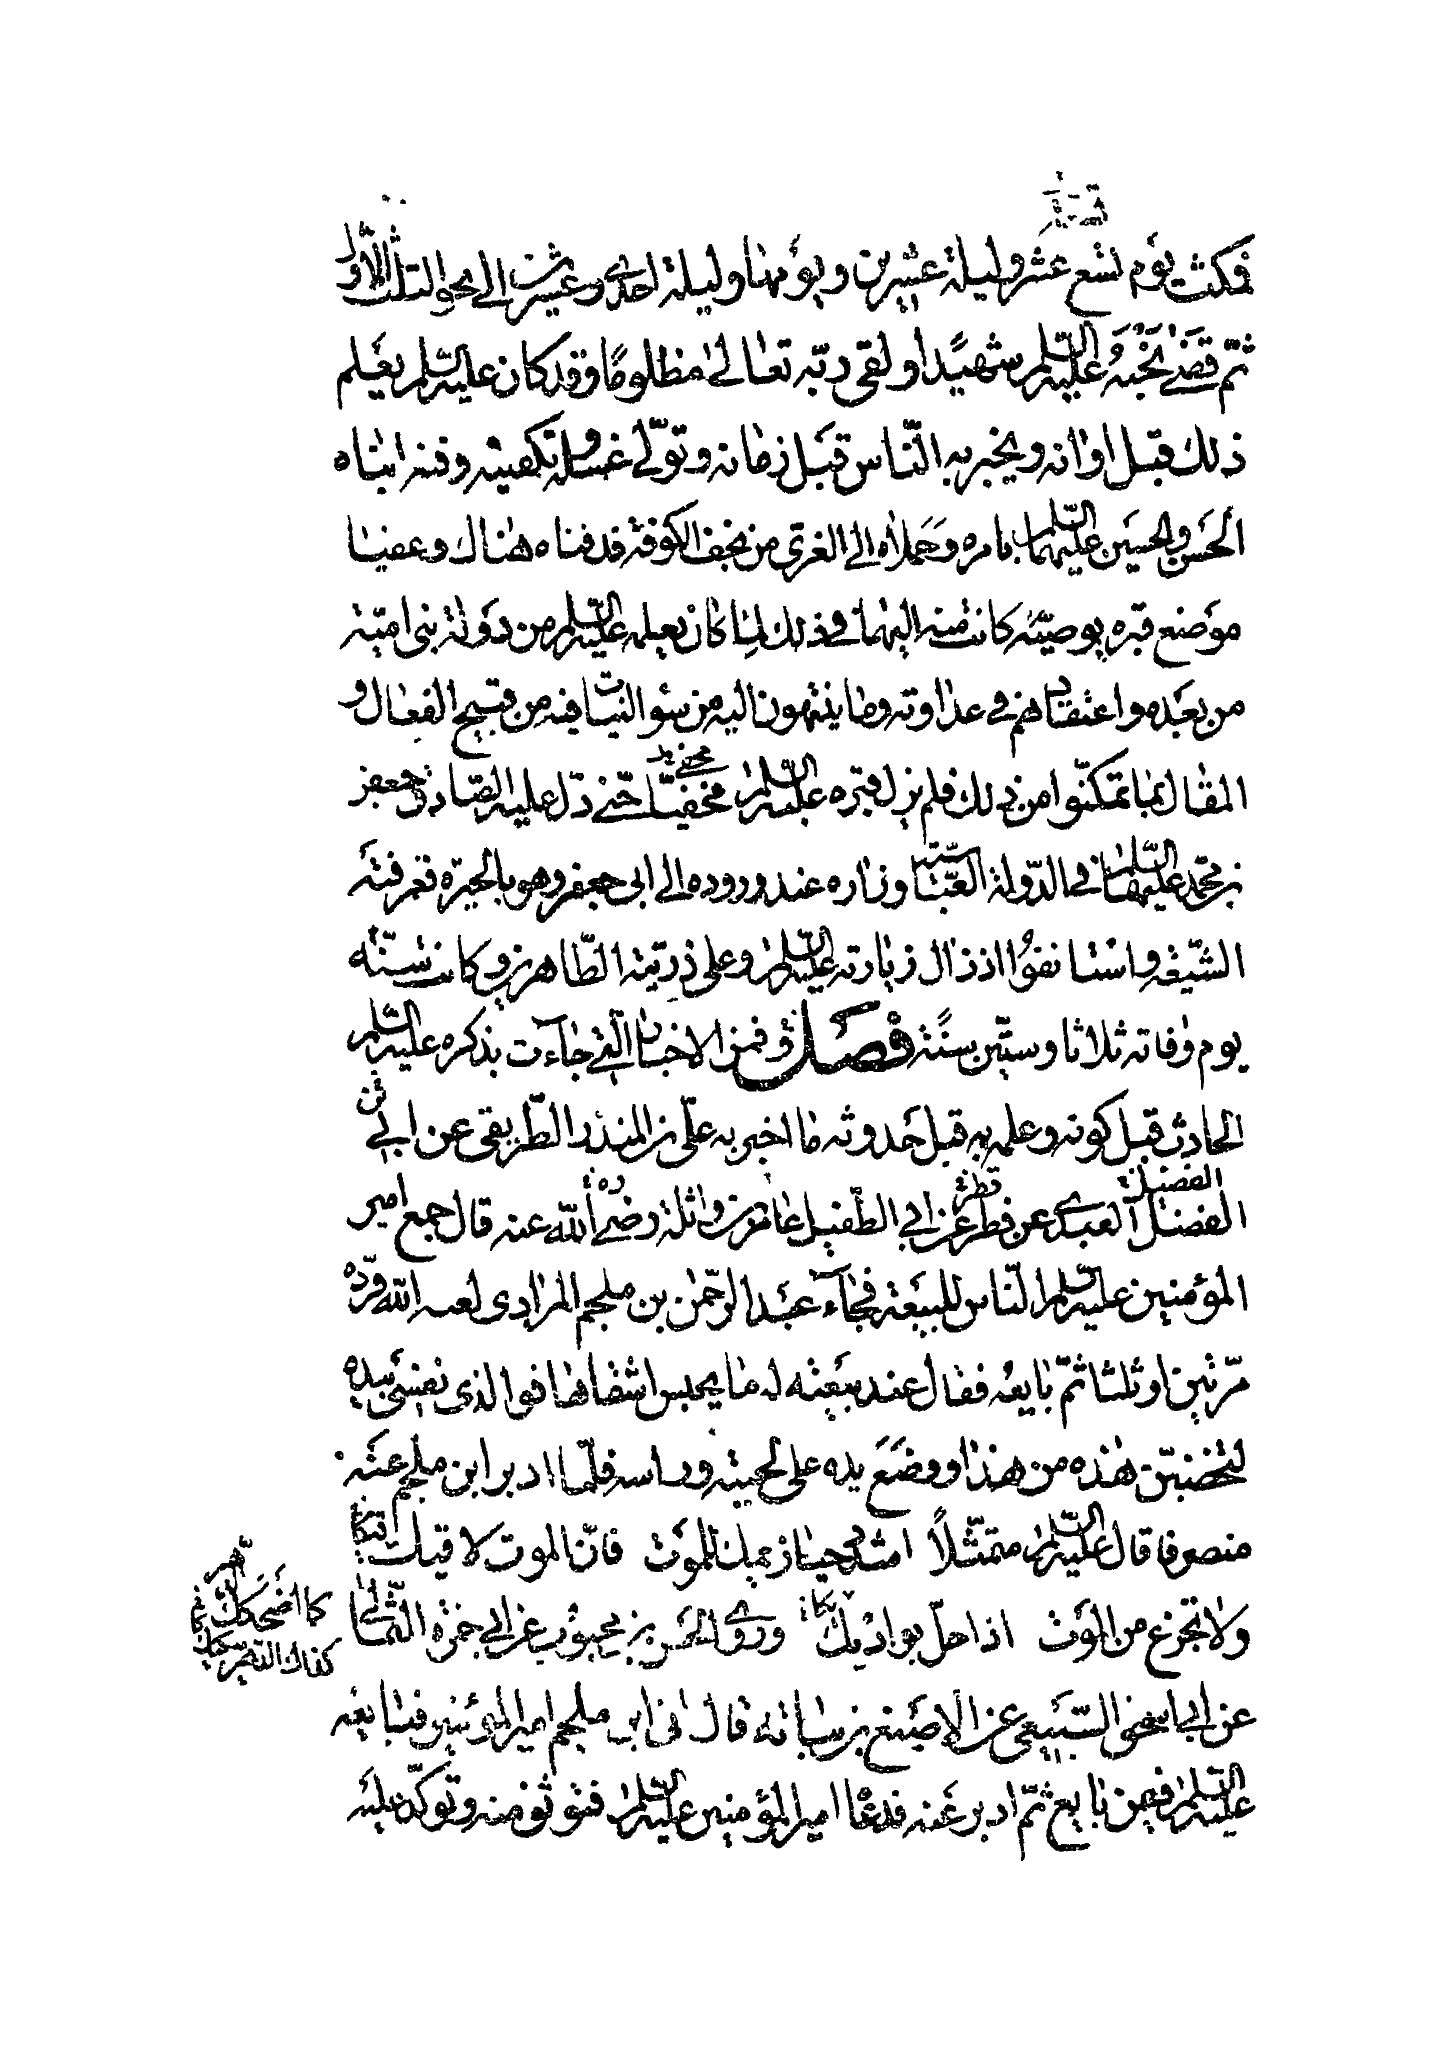 فمكث يوم تسع عشر وليلة عشرين ويومها وليلة احدى وعشرين الى نحو الثلث الاول
ثمّ قضى نَحْبَهُ عليه السّلم شهيدًا ولقى ربّه تعالى مظلومًا وقد كان عليه السّلم يعلم
ذلك قبل اوانه ويخبر به النّاس قبل زمانه وتولّى غسله وتكفينه ودفنه ابناه
الحَسن والحسَين عليهما السّلم بامره وَحَملاه الى الغرىّ من نجف الكوفة فدفناه هناك وعفيا
موضع قبره بوصيّة كانت منه اليهما فى ذلك لما كان يعلمه عليه السّلم من دولة بنى اميّة
من بعده واعتقادهم فى عداوته وما ينتهون اليه من سوء النيّات فيه من قبيح الفعال و
المقال بما تمكنّوا من ذلك فلم يزل قبره عليه السّلم مخفيّا حتّى دلّ عليه الصّادق جعفر
بن محمّد عليهما السّلم فى الدّولة العبّاسيّة وزاره عند وروده الى ابى جعفر وهو بالحيرة فعرفته
الشّيعة واستانفوا اذ ذاك زيارته عليه السّلم وعلى ذريّته الطّاهرين وكانت سنّه
يوم وفاته ثلاثا وستّين سنًة فصل فمن الاخبار الّتى جاءت بذكره عليه السّلم
الحادث قبل كونه وعلمه به قبل حَدوثه ما اخبر به علىّ بن المنذر الطّريقى عن ابن ابى
الفضيل
الفضل العبدى عن فطر عن ابى الطّفيل عامر بن واثلة رضى الله عنه قال جمع امير
المؤمنين عليه السّلم النّاس للبيعة فجاء عبد الرحّمن بن ملجم المرادى لعنه الله فردّه
مرّتين او ثلثا ثمّ بايعه فقال عند بيعته له ما يحبس اشقاها فوالذى نفسى بيده
لتخضبنّ هذه من هذا ووضَع يده على لحيته وراسه فلمّا ادبر ابن ملجم عنه
منصرفا قال عليه السّلم متمثّلاً اشدد حيازيمك للموت فانّ الموت لاقيك
ولا تجزع من الموت اذا حلّ بواديك وروى الحسن بن محبوب عن ابى حمزة الثّمالى
كما اضحكك الدّهر
كذاك الدّهر يبكيك
عن ابى اسحق السّبيعى عن الاصبغ بن نباتة قال اتى ابن ملجم امير المؤمنين فبايعه
عليه السّلم فيمن بايع ثمّ ادبر عنه فدعا امير المؤمنين عليه السّلم فتوثّق منه وتوكّد عليه